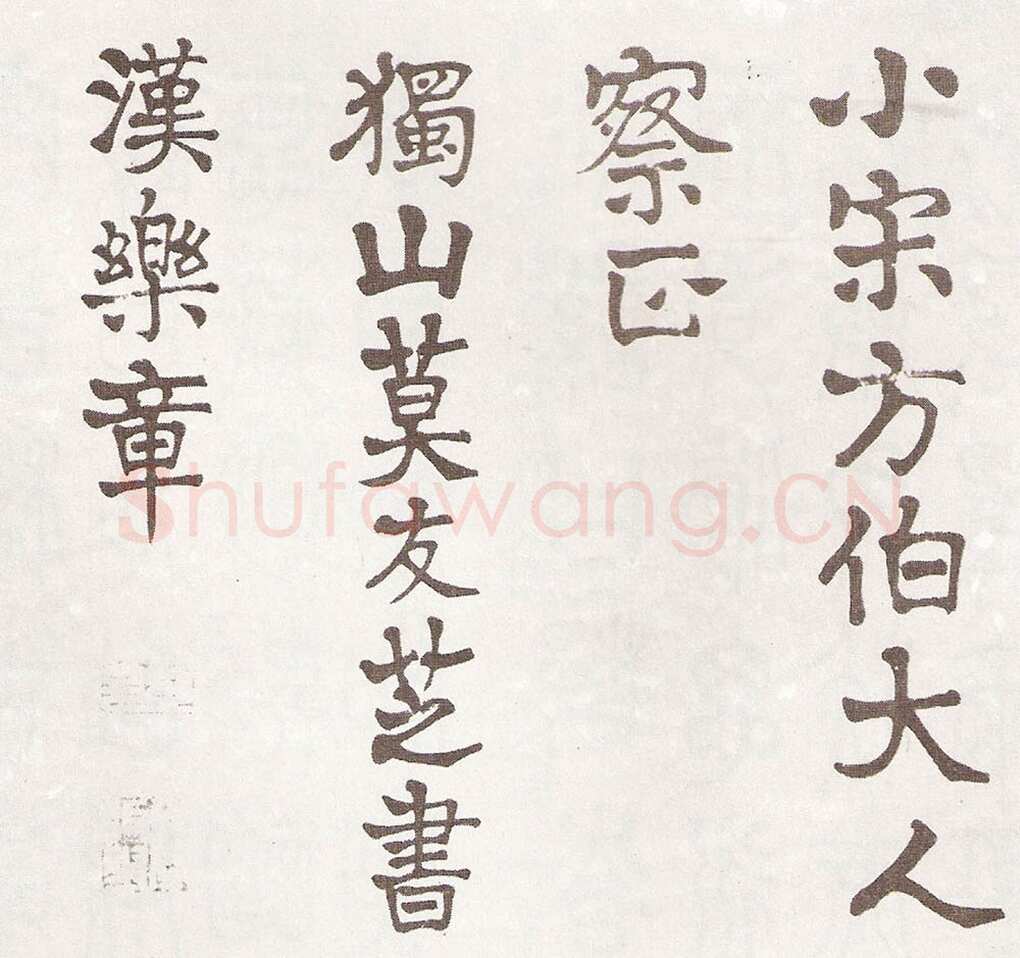 小宋方伯大人
察正
獨山莫友芝書
漢樂章
Shufawang.CN